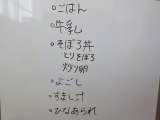 ○ごはん
○牛乳
○そぼろ丼
とりそぼろ
炒り卵
○よごし
○すまし汁
○ひなあられ